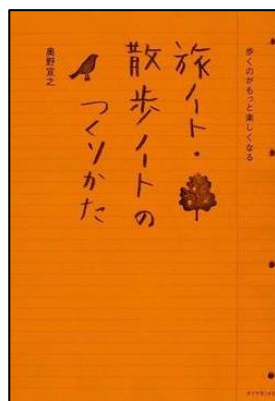 歩くのがもっと楽しくなる
旅ノート・
散歩ノートの
つくりかた
奥野宣之
ダイヤモンド社